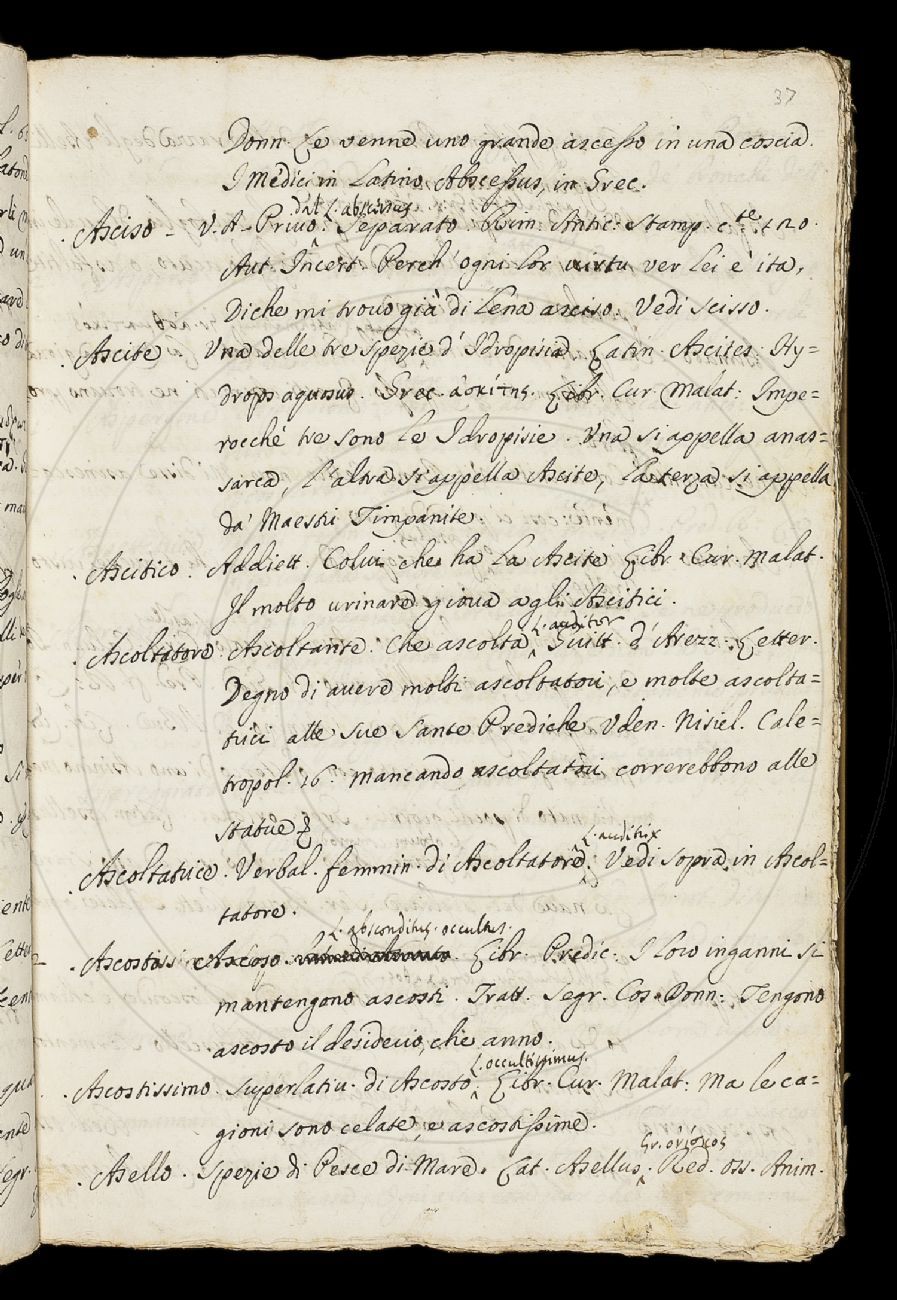 37
Donn. Le venne uno grande ascesso in una coscia.
I Medici in Latino Abscessus, in Grec.
dal L. abscissus
Asciso - V. A - Privo. Separato. Rim. Antic. Stamp. cte. 120.
Aut. Incert. Perch' ogni lor virtu ver lei è ita,
Di che mi trovo già di lena asciso. Vedi Scisso.
Ascite Una delle tre spezie d' Idropisia. Latin. Ascites. Hy=
drops aquosus. Grec. ἀσκίτης. Libr. Cur. Malat: Impe=
rocché tre sono le Idropisie. Una si appella anas=
sarca, L' altra si appella Ascite, la terza si appella
da' Maestri Timpanite.
Ascitico. Addiett. Colui che ha la Ascite Libr. Cur. Malat.
Il molto urinare giova agli Ascitici.
L. auditor
Ascoltatore. Ascoltante. Che ascolta, Guitt. d' Arezz. Letter.
Degno di avere molti ascoltatori, e molte ascolta=
trici alle sue sante Prediche Uden. Nisiel. Cale=
tropol. 16. mancando ascoltatori correrebbono alle
statue
L. auditrix
Ascoltatrice. Verbal. femmin. di Ascoltatore. Vedi sopra in Ascol=
tatore.
L. absconditus. occultus.
Ascosto. Ascoso. Libr. Predic. I loro inganni si
mantengono ascosti. Tratt. Segr. Cos. Donn: Tengono
ascosto il desiderio, che anno.
L. occultissimus.
Ascostissimo. Superlativ. di Ascosto. Libr. Cur. Malat: Ma le ca=
gioni sono celate, e ascostissime.
Gr. ὀνίσκος
Asello. Spezie di Pesce di Mare. Lat. Asellus. Red. Oss. Anim.